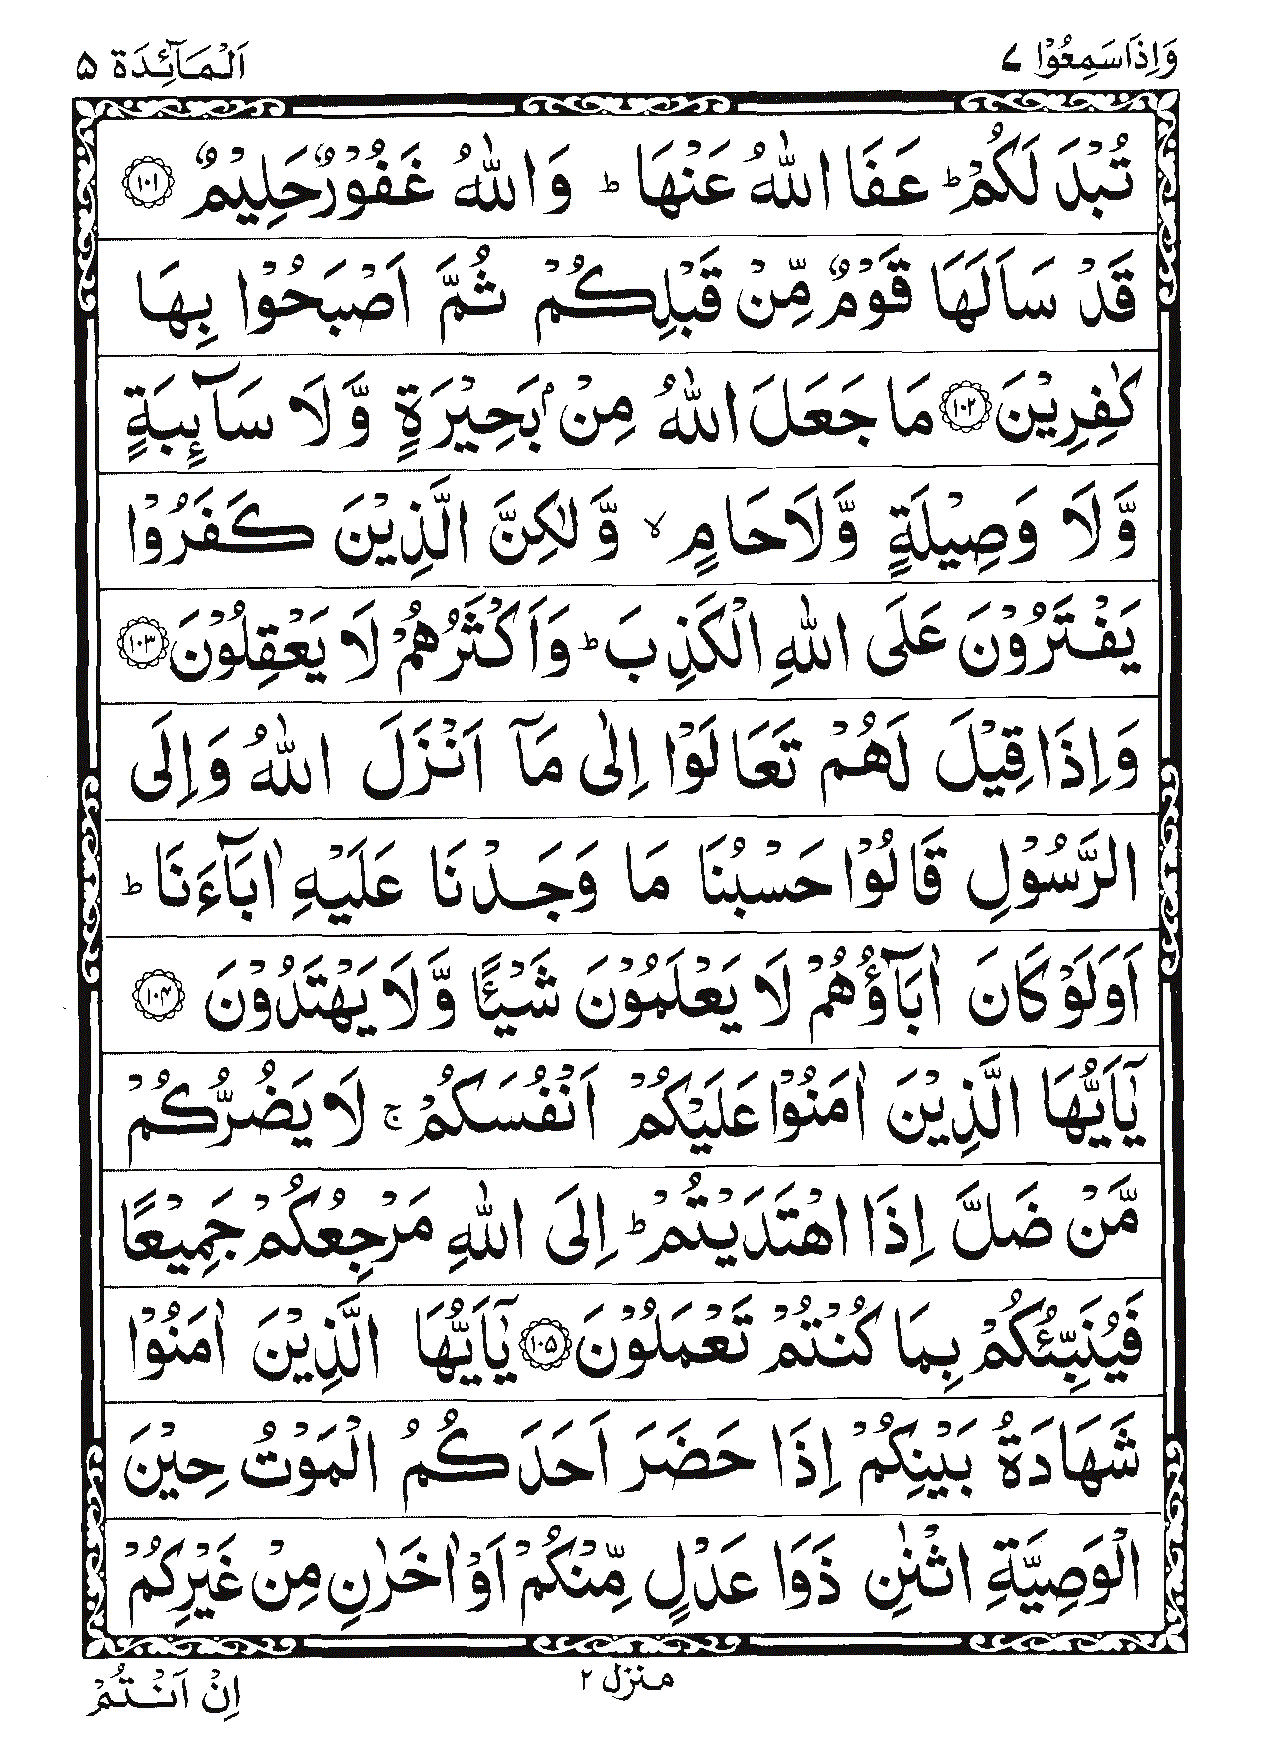 وَاِذَاسَمِعُوْا ٧
اَلْمَآئِدَة ۵
تُبْدَ لَكُمْ ؕ عَفَا اللّٰهُ عَنْهَا ؕ وَاللّٰهُ غَفُوْرٌ حَلِيْمٌ ۝۱۰۱
قَدْ سَاَلَهَا قَوْمٌ مِّنْ قَبْلِكُمْ ثُمَّ اَصْبَحُوْا بِهَا
كٰفِرِيْنَ ۝۱۰۲ مَا جَعَلَ اللّٰهُ مِنْۢ بَحِيْرَةٍ وَّلَا سَآئِبَةٍ
وَّلَا وَصِيْلَةٍ وَّلَا حَامٍ ۙ وَّلٰكِنَّ الَّذِيْنَ كَفَرُوْا
يَفْتَرُوْنَ عَلَى اللّٰهِ الْكَذِبَ ؕ وَاَكْثَرُهُمْ لَا يَعْقِلُوْنَ ۝۱۰۳
وَاِذَا قِيْلَ لَهُمْ تَعَالَوْا اِلٰى مَآ اَنْزَلَ اللّٰهُ وَاِلَى
الرَّسُوْلِ قَالُوْا حَسْبُنَا مَا وَجَدْنَا عَلَيْهِ اٰبَآءَنَا ؕ
اَوَلَوْ كَانَ اٰبَآؤُهُمْ لَا يَعْلَمُوْنَ شَيْـًٔا وَّلَا يَهْتَدُوْنَ ۝۱۰۴
يٰٓاَيُّهَا الَّذِيْنَ اٰمَنُوْا عَلَيْكُمْ اَنْفُسَكُمْ ۚ لَا يَضُرُّكُمْ
مَّنْ ضَلَّ اِذَا اهْتَدَيْتُمْ ؕ اِلَى اللّٰهِ مَرْجِعُكُمْ جَمِيْعًا
فَيُنَبِّئُكُمْ بِمَا كُنْتُمْ تَعْمَلُوْنَ ۝۱۰۵ يٰٓاَيُّهَا الَّذِيْنَ اٰمَنُوْا
شَهَادَةُ بَيْنِكُمْ اِذَا حَضَرَ اَحَدَكُمُ الْمَوْتُ حِيْنَ
الْوَصِيَّةِ اثْنٰنِ ذَوَا عَدْلٍ مِّنْكُمْ اَوْ اٰخَرٰنِ مِنْ غَيْرِكُمْ
منزل ۲
اِنْ اَنْتُمْ